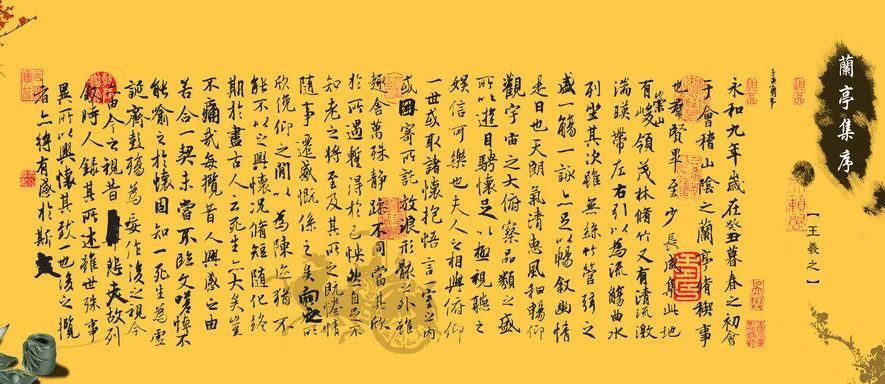 蘭亭集序
【王羲之】
永和九年歲在癸丑暮春之初會
于會稽山陰之蘭亭脩稧事
也羣賢畢至少長咸集此地
有崇山峻領茂林脩竹又有清流激
湍暎帶左右引以為流觴曲水
列坐其次雖無絲竹管弦之
盛一觴一詠亦足以暢叙幽情
是日也天朗氣清惠風和暢仰
觀宇宙之大俯察品類之盛
所以遊目騁懷足以極視聽之
娛信可樂也夫人之相與俯仰
一世或取諸懷抱悟言一室之內
或因寄所託放浪形骸之外雖
趣舍萬殊靜躁不同當其欣
於所遇蹔得於己怏然自足不
知老之將至及其所之既惓情
隨事遷感慨係之矣向之所
欣俛仰之閒以為陳迹猶不
能不以之興懷況脩短隨化終
期於盡古人云死生亦大矣豈
不痛哉每攬昔人興感之由
若合一契未嘗不臨文嗟悼不
能喻之於懷固知一死生為虛
誕齊彭殤為妄作後之視今
亦由今之視昔悲夫故列
敘時人錄其所述雖世殊事
異所以興懷其致一也後之攬
者亦將有感於斯文